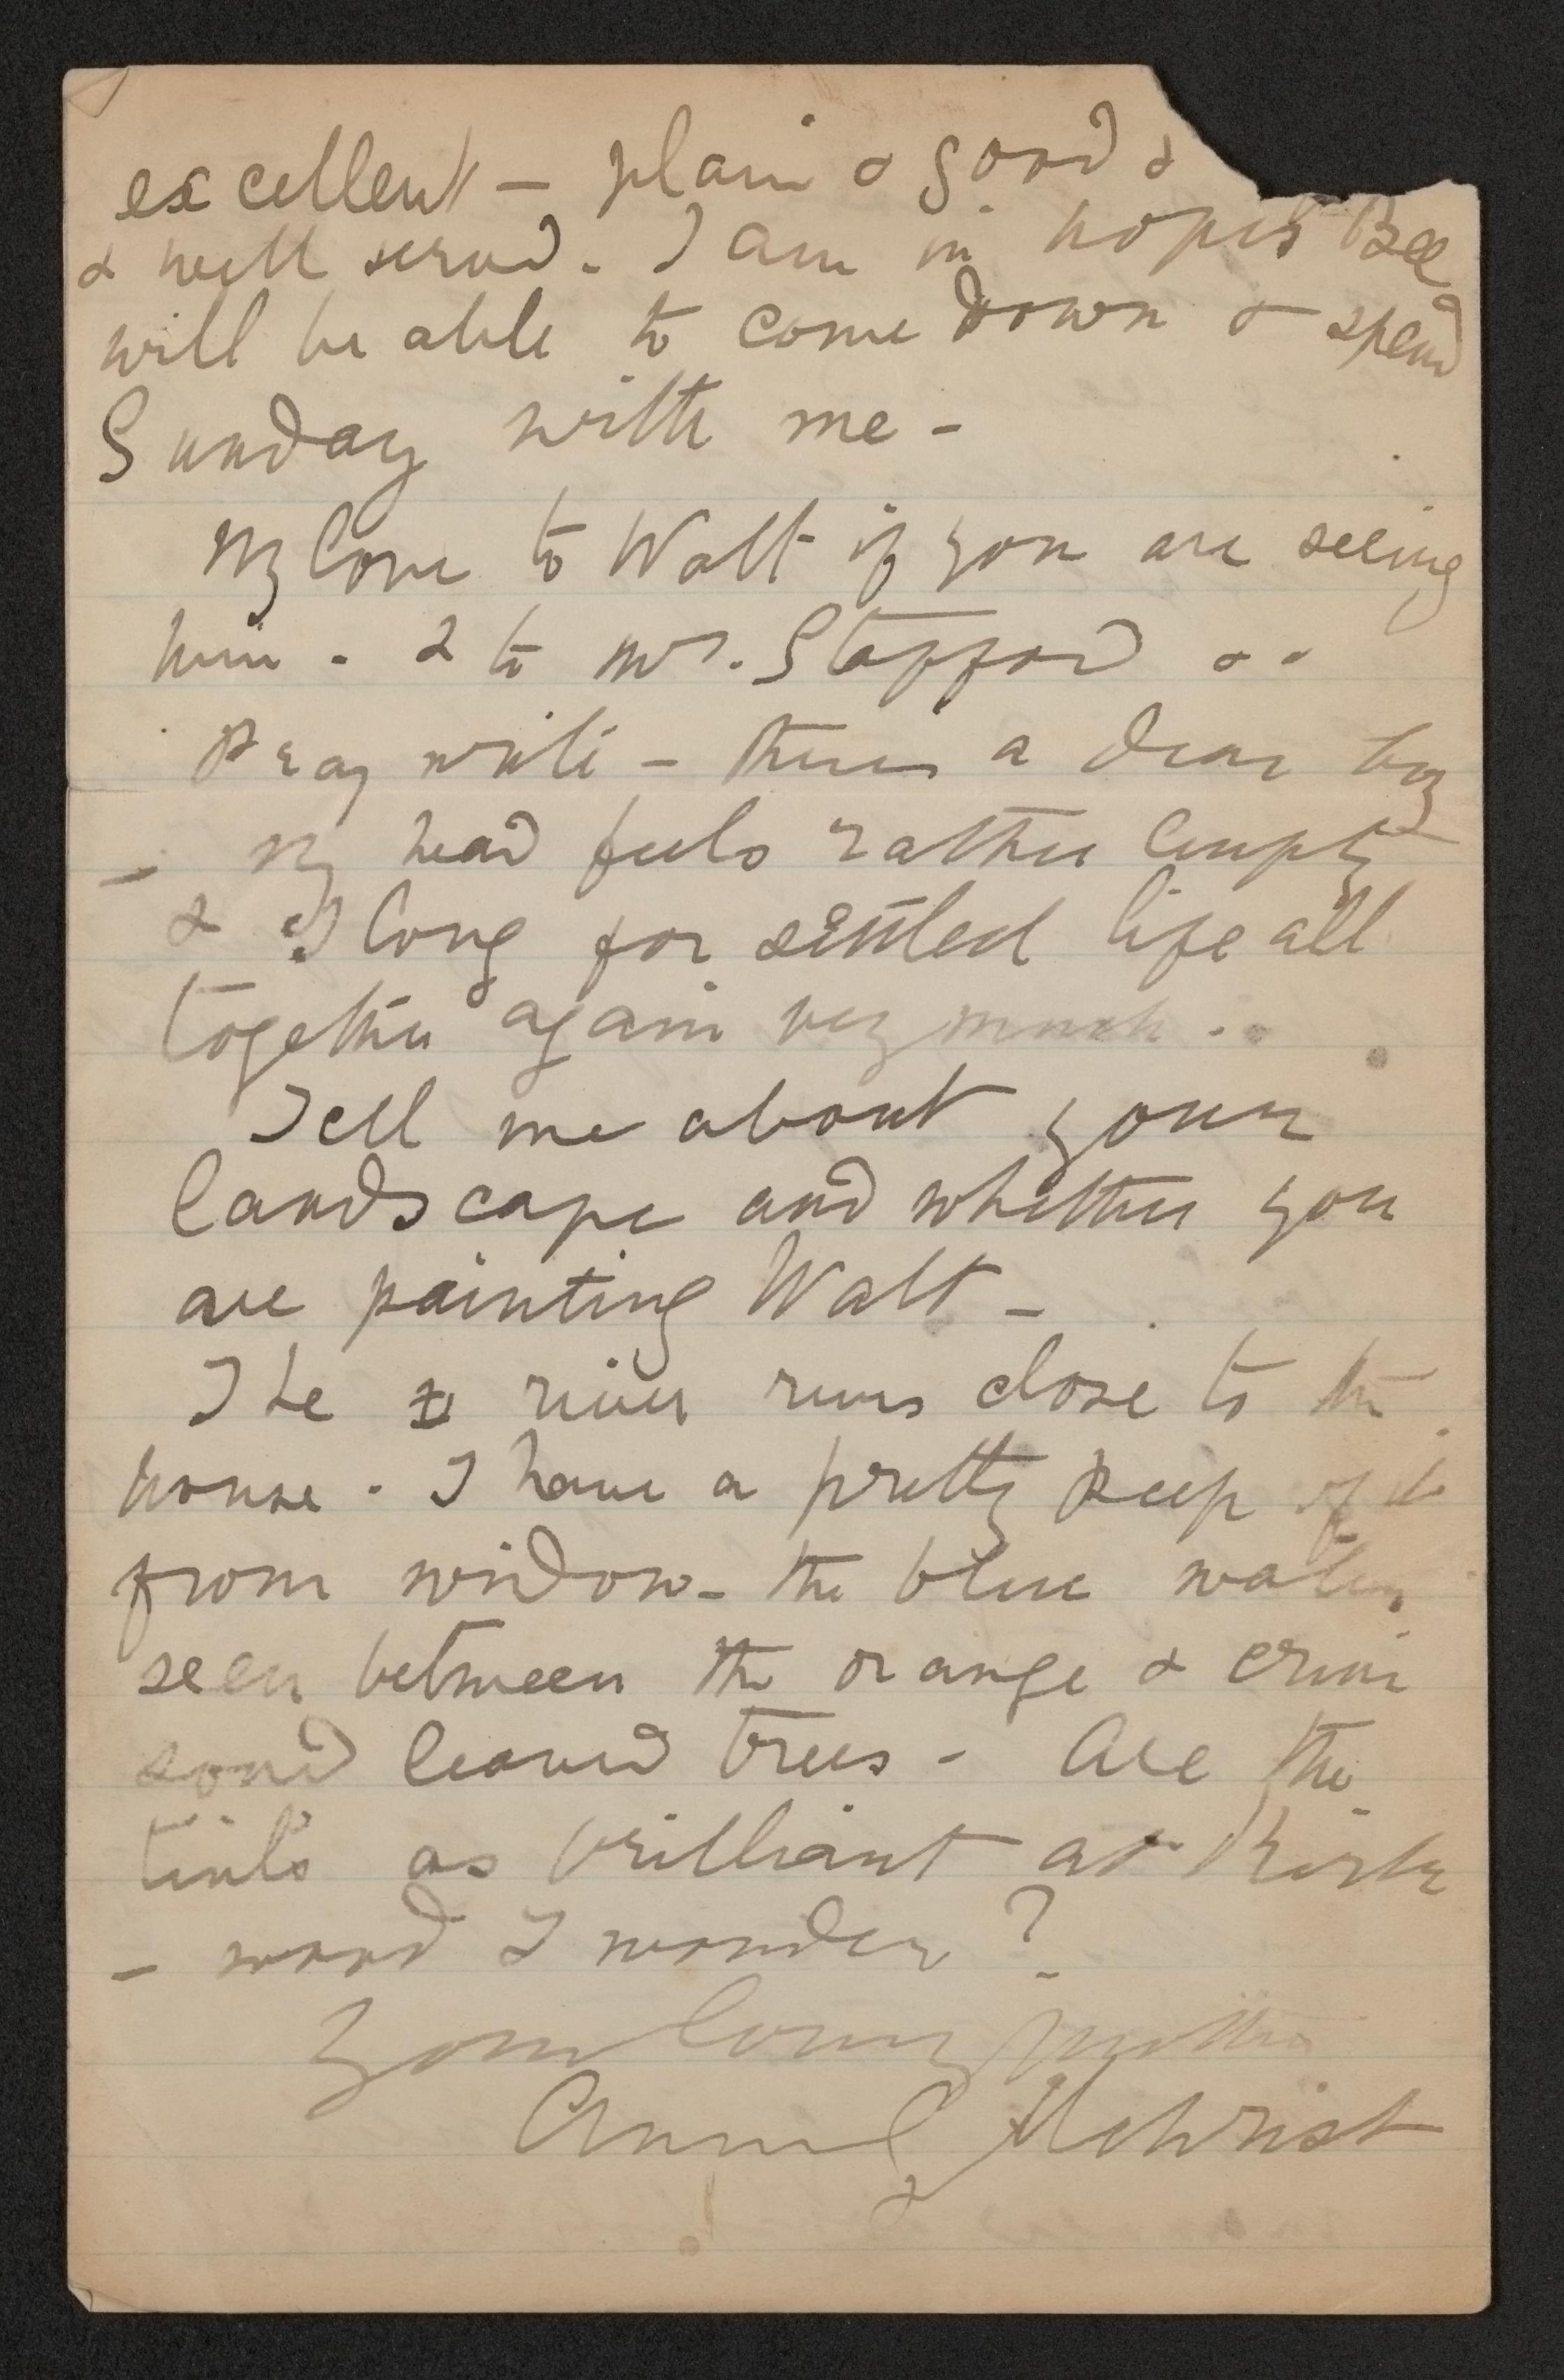 excellent – plain & good &
& well served. I am in hopes Bee
will be able to come down & spend
Sunday with me –
My love to Walt if you are seeing
him. & to Mrs. Stafford ..
Pray write – there's a dear boy
– My head feels rather empty
& I long for settled life all
together again very much ..
Tell me about your
landscape and whether you
are painting Walt –
The river runs close to the
house. I have a pretty peep of it
from window – the blue water
seen between the orange & crim
sond leaved trees – Are the
tints as brilliant at Kirk
– wood I wonder?
Your loving mother
Anne Gilchrist